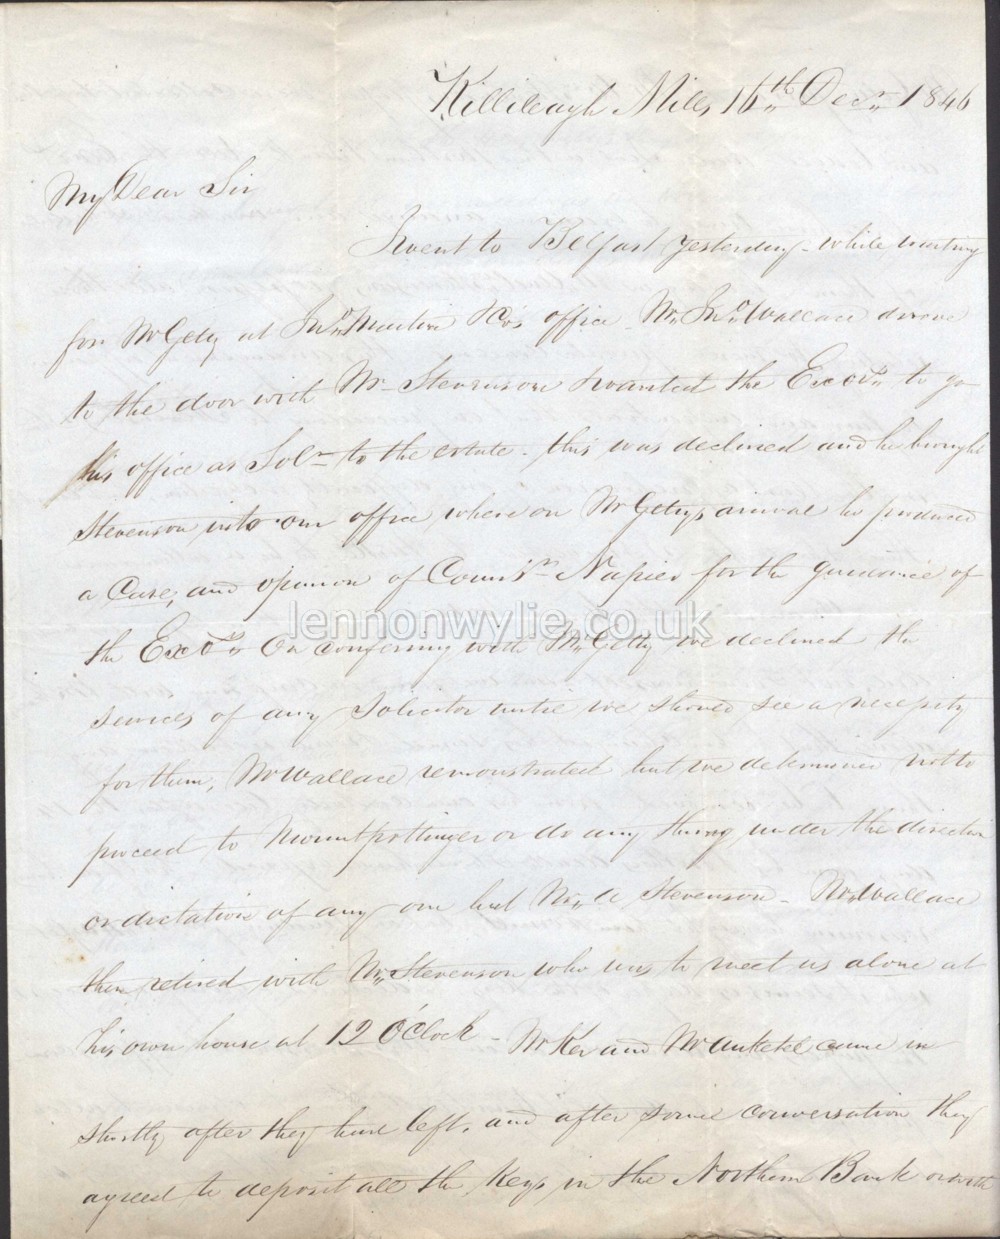 Killileagh Mills 16th Decr 1846
My Dear Sir
I went to Belfast yesterday - while waiting
for Mr Getty at Jno Martin & Co's office Mr Jno Wallace drove
to the door with Mr Stevenson & wanted the Exors to go
his office as Solr to the estate - this was declined and he brought
Stevenson into our office where on Mr Gettys arrival he produced
a Case, and opinion of Couns Napier for the guidance of
the Exors On conferring with Mr Getty we declined the
services of any Solicitor until we should see a necessity
for them, Mr Wallace remonstrated but we determined not to
proceed to Mountpottinger or do any thing under the direction
or dictation of any one but Mr A Stevenson - Mr Wallace
then retired with Mr Stevenson who was to meet us alone at
his own house at 12 O'Clock - Mr Ker and Mr Anketel came in
shortly after they had left, and after some conversation they
agreed to deposit all the Keys in the Northern Bank or with
lennonwylie.co.uk